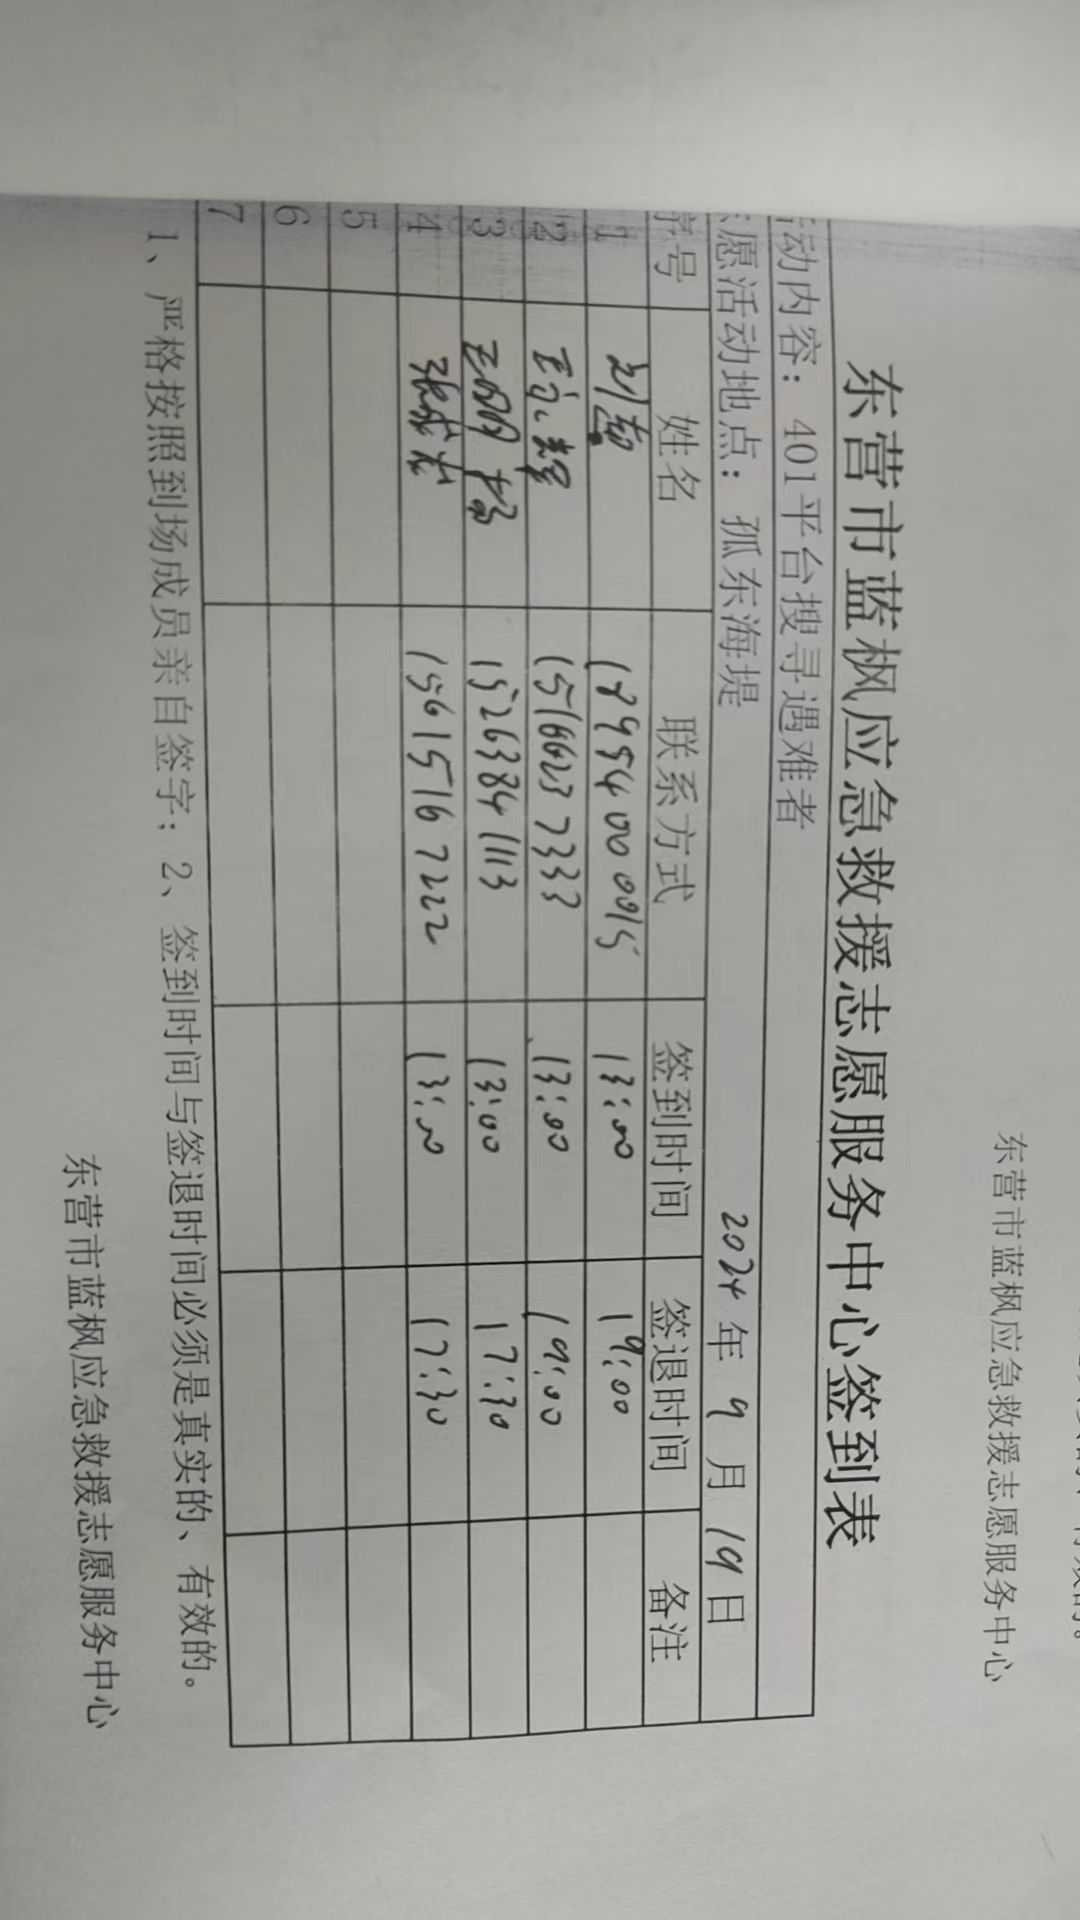 东营市蓝枫应急救援志愿服务中心
东营市蓝枫应急救援志愿服务中心签到表
动内容：401平台搜寻遇难者
愿活动地点：孤东海堤 2024年 9月 19日
序号 姓名 联系方式 签到时间 签退时间 备注
1 18954000015 13:00 19:00
2 15166237333 13:00 19:00
3 15263841113 13:00 17:30
4 15615167222 13:00 17:30
5
6
7
1、严格按照到场成员亲自签字；2、签到时间与签退时间必须是真实的、有效的。
东营市蓝枫应急救援志愿服务中心